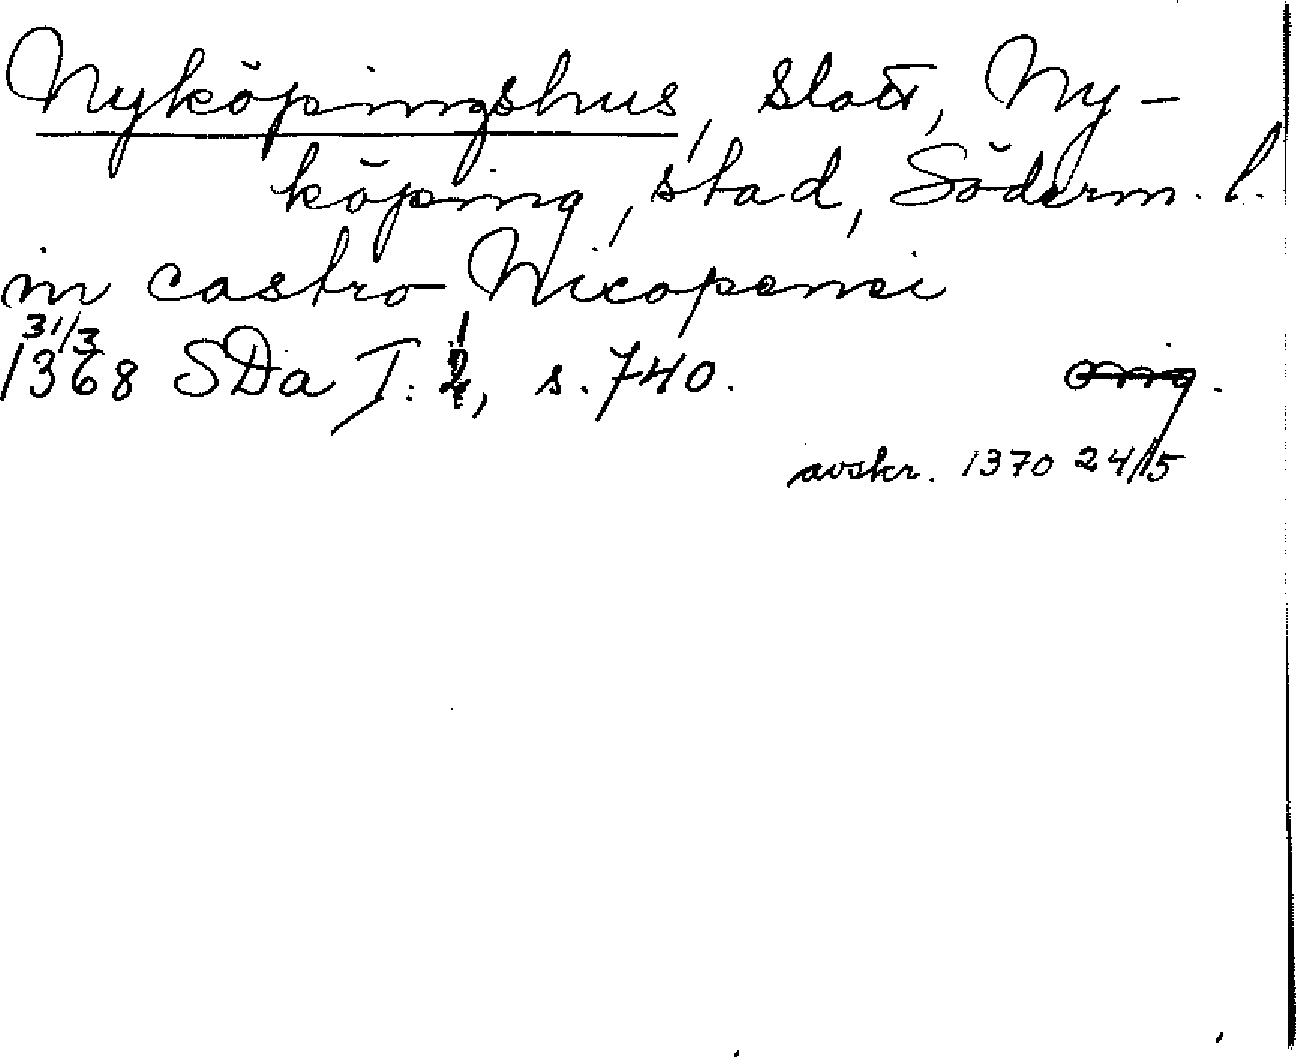 Nyköpingshus, slott, Ny-
köping, stad, Söderm. l.
in castro Nicopensi
31/3
1368 SDa I: , s. 740. orig.
avskr. 1370 24/5